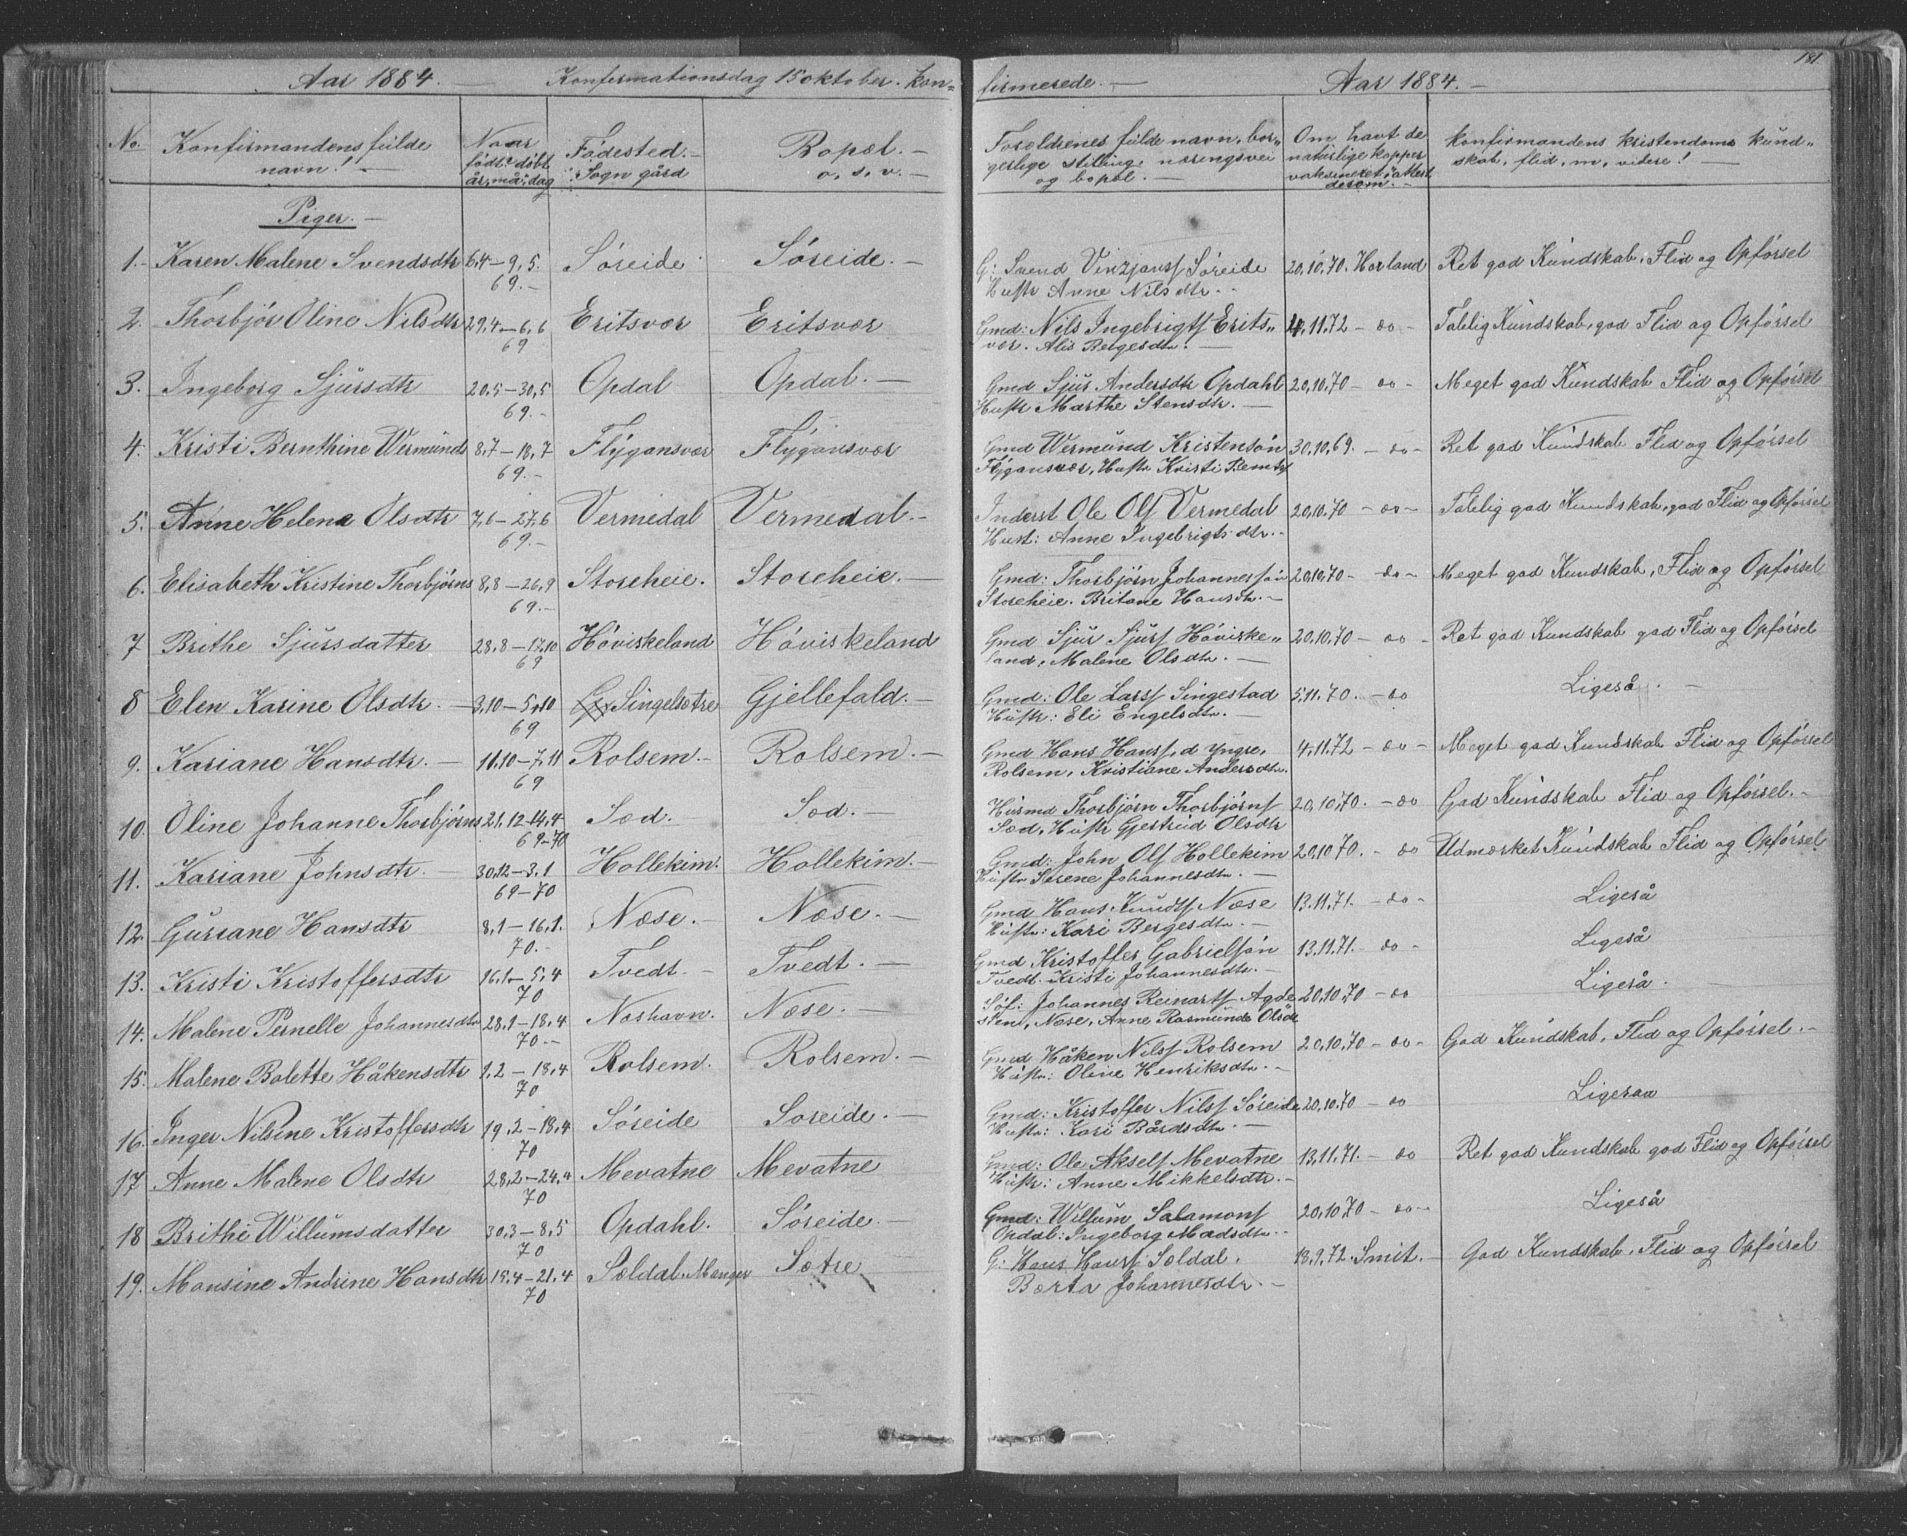 Aar 1884. — Konfirmationsdag 15 oktober. kon=
No. Konfirmandens fulde navn! — Naar født: døbt år, må: dag Fødested. — Sogn gård Bopæl. — o, s, v. —
Piger. —
1. Karen Malene Svendsdtr 6,4 — 9,5. 69. — Søreide Søreide. —
2. Thorbjør Oline Nilsdtr 29,4 — 6,6 69 Eritsvær Eritsvær
3. Ingeborg Sjursdtr 20,5 — 30,5 69. — Opdal Opdal. —
4. Kristi Bernthine Wermunds 8,7 — 18,7 69. — Flygansvær Flygansvær
5. Anne Helena Olsdtr 7,6 — 27,6 69. — Vermedal Vermedal. —
6. Elisabeth Kristine Thorbjørns 8,8 — 26,9 69. — Storeheie. Storeheie. —
7 Brithe Sjursdatter 28,8 — 17,10 69 Høviskeland Høviskeland
8 Elen Karine Olsdtr. — 3,10 — 5,10 69 Singelsetre Gjellefald. —
9. Kariane Hansdtr. — 11,10 — 7,11 69 Rolsem. — Rolsem. —
10. Oline Johanne Thorbjørns 21,12 — 14,4 69-70 Sæd. — Sæd. —
11. Kariane Johnsdtr. — 30,12 — 3,1 69-70 Hollekim. Hollekim. —
12. Guriane Hansdtr 8,1 — 16,1. 70. — Næse. — Næse. —
13. Kristi Kristoffersdtr 16,1 — 5,4 70 Tvedt. — Tvedt. —
14. Malene Pernelle Johannesdtr 28,1 — 18,4 70. — Næshavn. Næse. —
15. Malene Bolette Håkensdtr 1,2 — 18,4 70 Rolsem. Rolsem. —
16. Inger Nilsine Kristoffersdtr 19,2 — 18,4 70 Søreide Søreide. —
17 Anne Malene Olsdtr 28,2 — 24,4 70 Mevatne Mevatne
18 Brithe Willumsdatter 30,3 — 8,5 70 Opdahl. Søreide. —
19. Monsine Andrine Hansdtr 15,4 — 21,4 70 Sældal. Manger Sætre
181
firmerede. — Aar 1884. —
Foreldrenes fulde navn, borgerlige stilling, næringsvei og bopæl. — Om havt de naturlige kopper vaksineret i attest desom. — Konfirmandens kristendoms kundskab, flid, m, videre! —
G: Svend Vinzjansf Søreide 20,10,70. Horland Ret god Kundskab, Flid og Opførsel
Hustr Anne Nilsdtr. —
Gmd: Nils Ingebrigtf Erits= 4,11,72 — do — Talelig Kundskab, god Flid og Opførsel
vær. Alis Bergesdtr. —
Gmd Sjur Andersdtr Opdahl 20,10,70 — do — Meget god Kundskab Flid og Opførsel
Hustr Marthe Stensdtr. —
Gmd Wermund Kristensøn 30,10,69. — do — Ret god Kundskab Flid og Opførsel
Flygansvær, Hustr Kristi
Inderst Ole Olf Vermedal 20,10,70 — do — Talelig god Kundskab, god Flid og Opførsel
Hust: Anne Ingebrigtsdtr. —
Gmd: Thorbjørn Johannessøn 20,10,70 — do — Meget god Kundskab, Flid og Opførsel
Storeheie. Britane Hansdtr. —
Gmd Sjur Sjurf Høviske= 20,10,70 — do — Ret god Kundskab god Flid og Opførsel
land, Malene Olsdtr. —
Gmd: Ole Larsf Singestad 5,11,70. — do Ligeså. —
Hustr: Eli Engelsdtr. —
Gmd Hans Hansf, d yngre, 4,11,72 — do — Meget god Kundskab Flid og Opførsel
Rolsem, Kristiane Andersdtr.
Husmd Thorbjørn Thorbjørnf 20,10,70. — do God Kundskab Flid og Opførsel. —
Sæd, Hustr Gjertrud Olsdtr
Gmd: John Olf Hollekim 20,10,70. — do Udmærket Kundskab Flid og Opførsel
Hustr Serene Johannesdtr. —
Gmd Hans Knudtf Næse 13,11,71. — do — Ligeså
Hustr: Kari Bergesdtr. —
Gmd Kristoffer Gabrielsøn 13,11,71. — do — Ligeså
Tvedt. Kristi Johannesdtr. —
Søf: Johannes Reinartf Agde= 20,10,70 — do Ligeså.
sten, Næse, Anne Rasmunda Olsdtr
Gmd Håken Nilsf Rolsem 20,10,70 — do — God Kundskab, Flid og Opførsel. —
Hustr: Oline Henriksdtr. —
Gmd: Kristoffer Nilsf Søreide 20,10,70 — do Ligesaa
Hustr: Kari Bårdsdtr. —
Gmd: Ole Akself Mevatne 13,11,71. — do Ret god Kundskab god Flid og Opførsel
Hustr: Anne Mikkelsdtr. —
Gmd: Willum Salamonf 20,10,70 — do — Ligeså
Opdal: Ingeborg Madsdtr. —
G: Hans Hansf Sældal. 18,9,72. Smit. — God Kundskab, Flid og Opførsel
Berta Johannesdtr. —